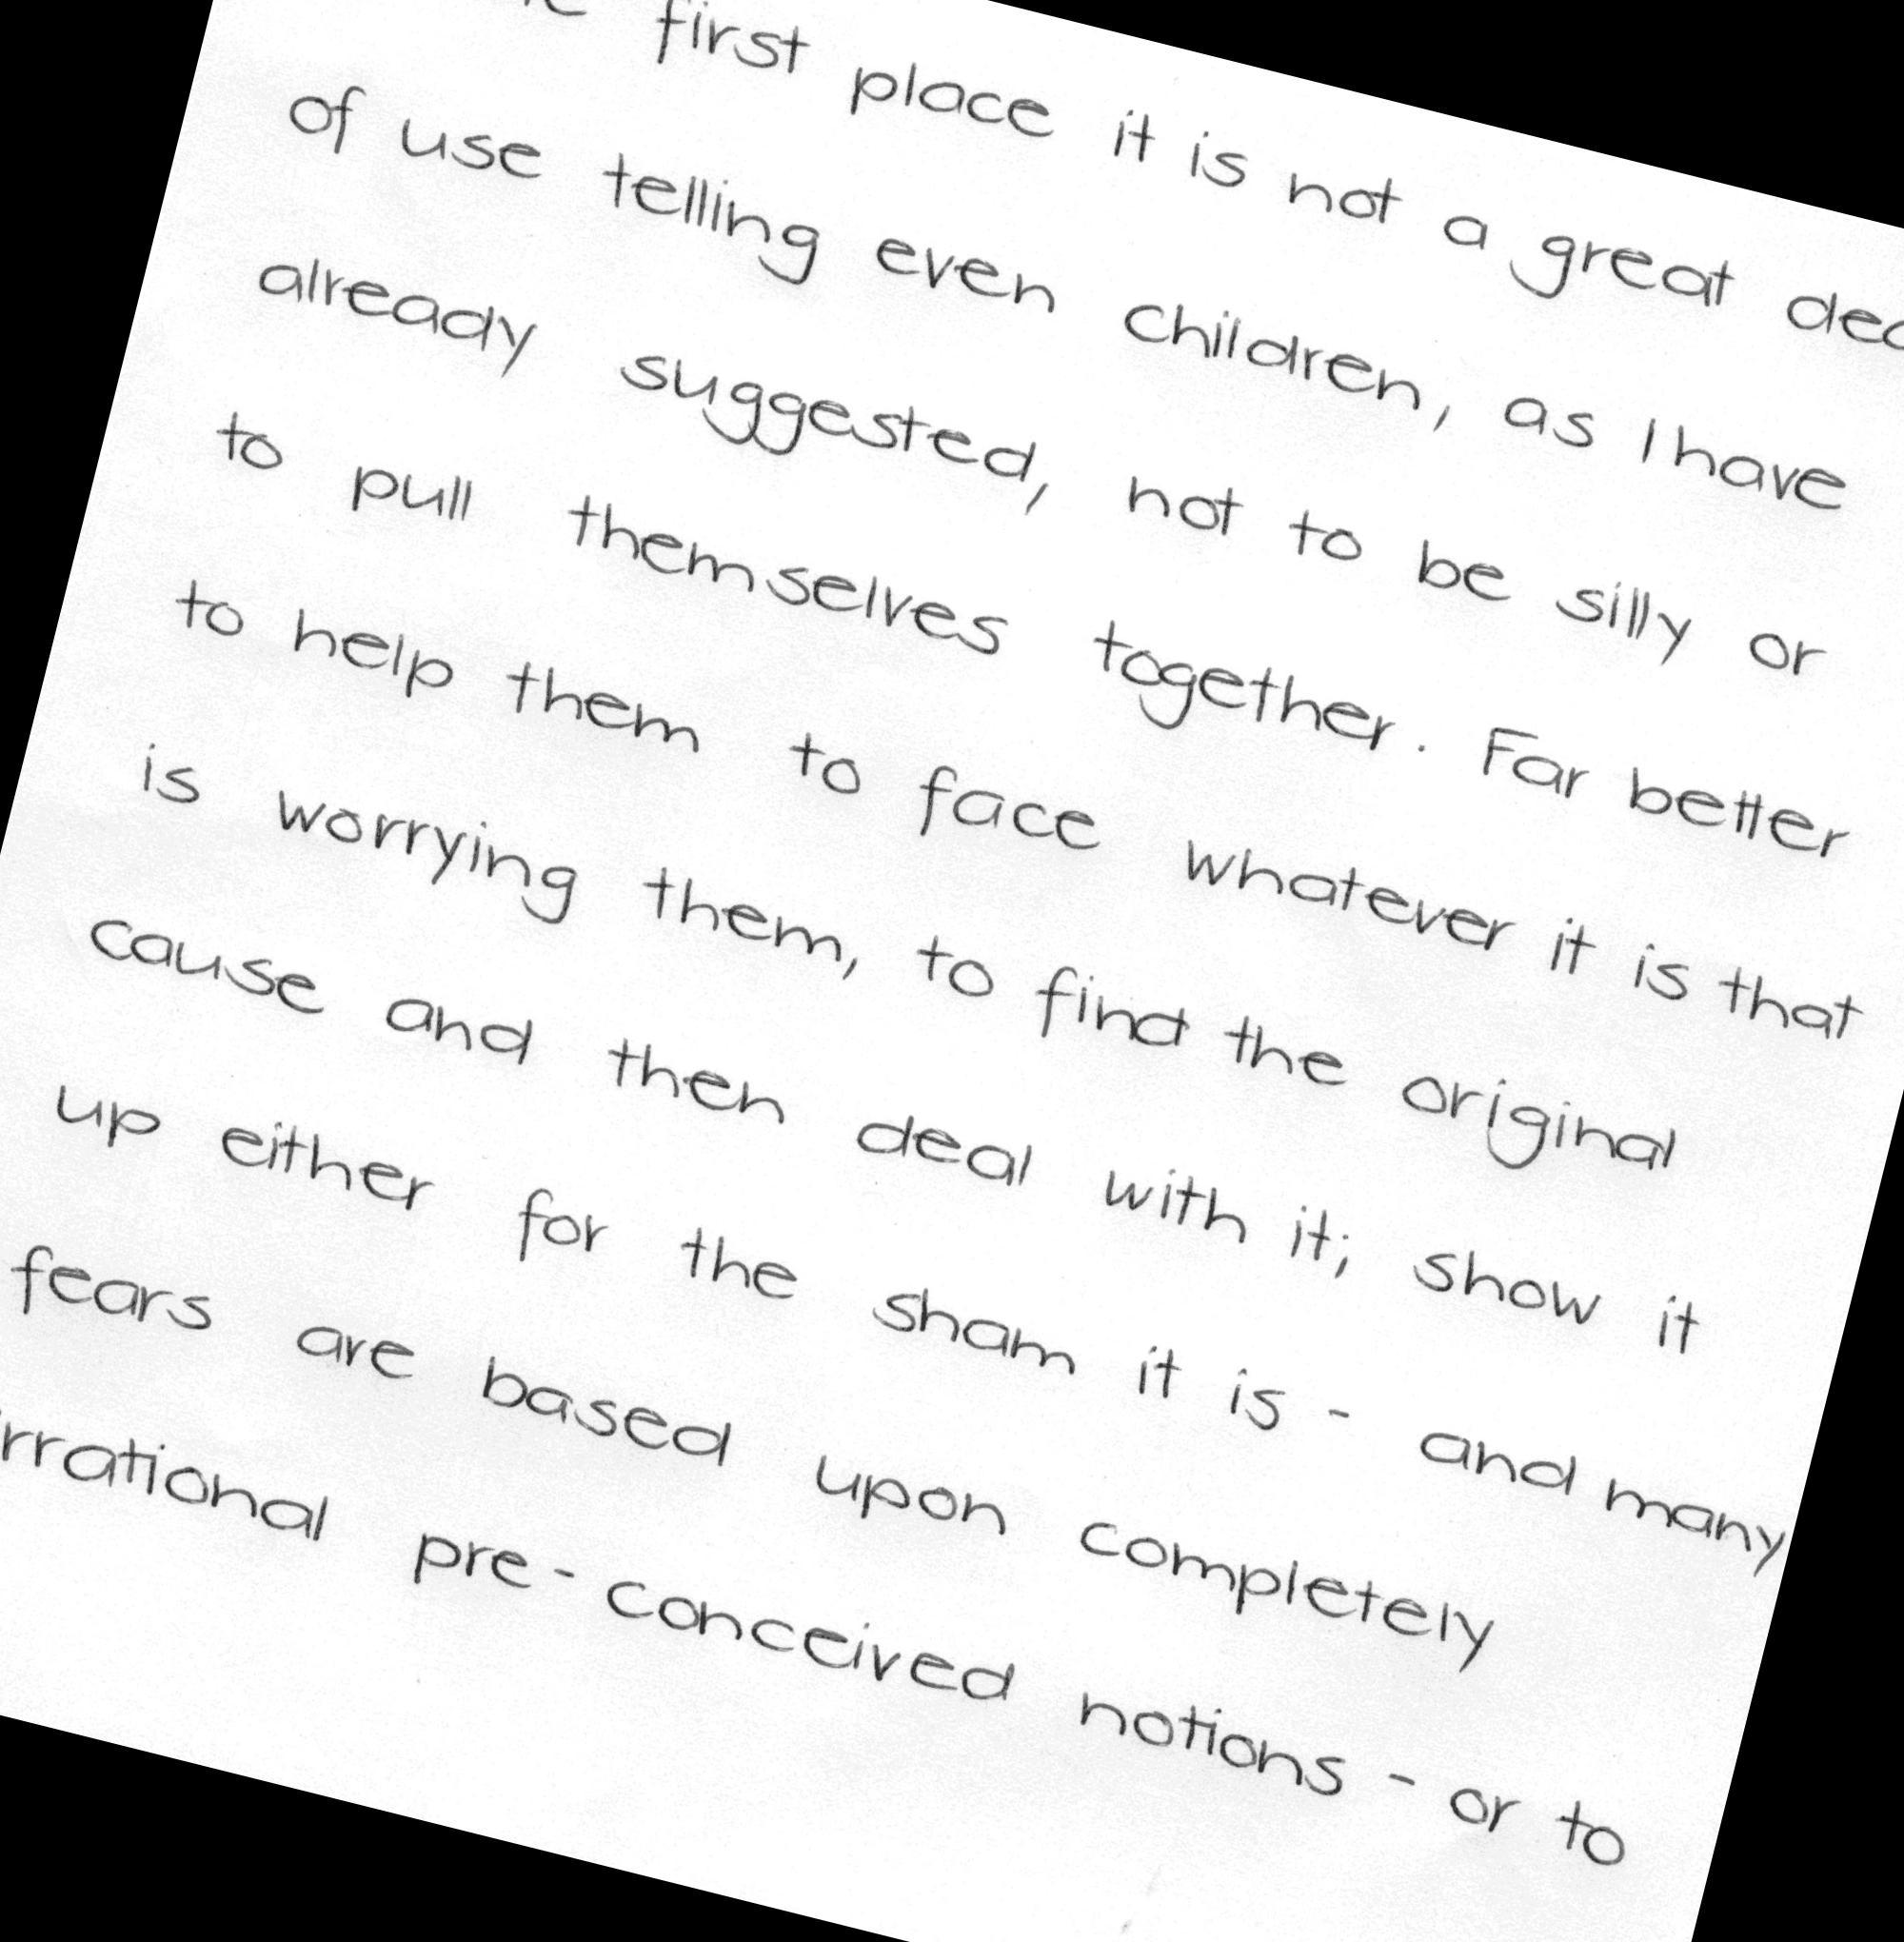 first place it is not a great
of use telling even children, as I have
already suggested, not to be silly or
to pull themselves together. Far better
to help them to face whatever it is that
is worrying them, to find the original
cause and then deal with it; show it
up either for the sham it is - and many
fears are based upon completely
irrational pre-conceived notions - or to